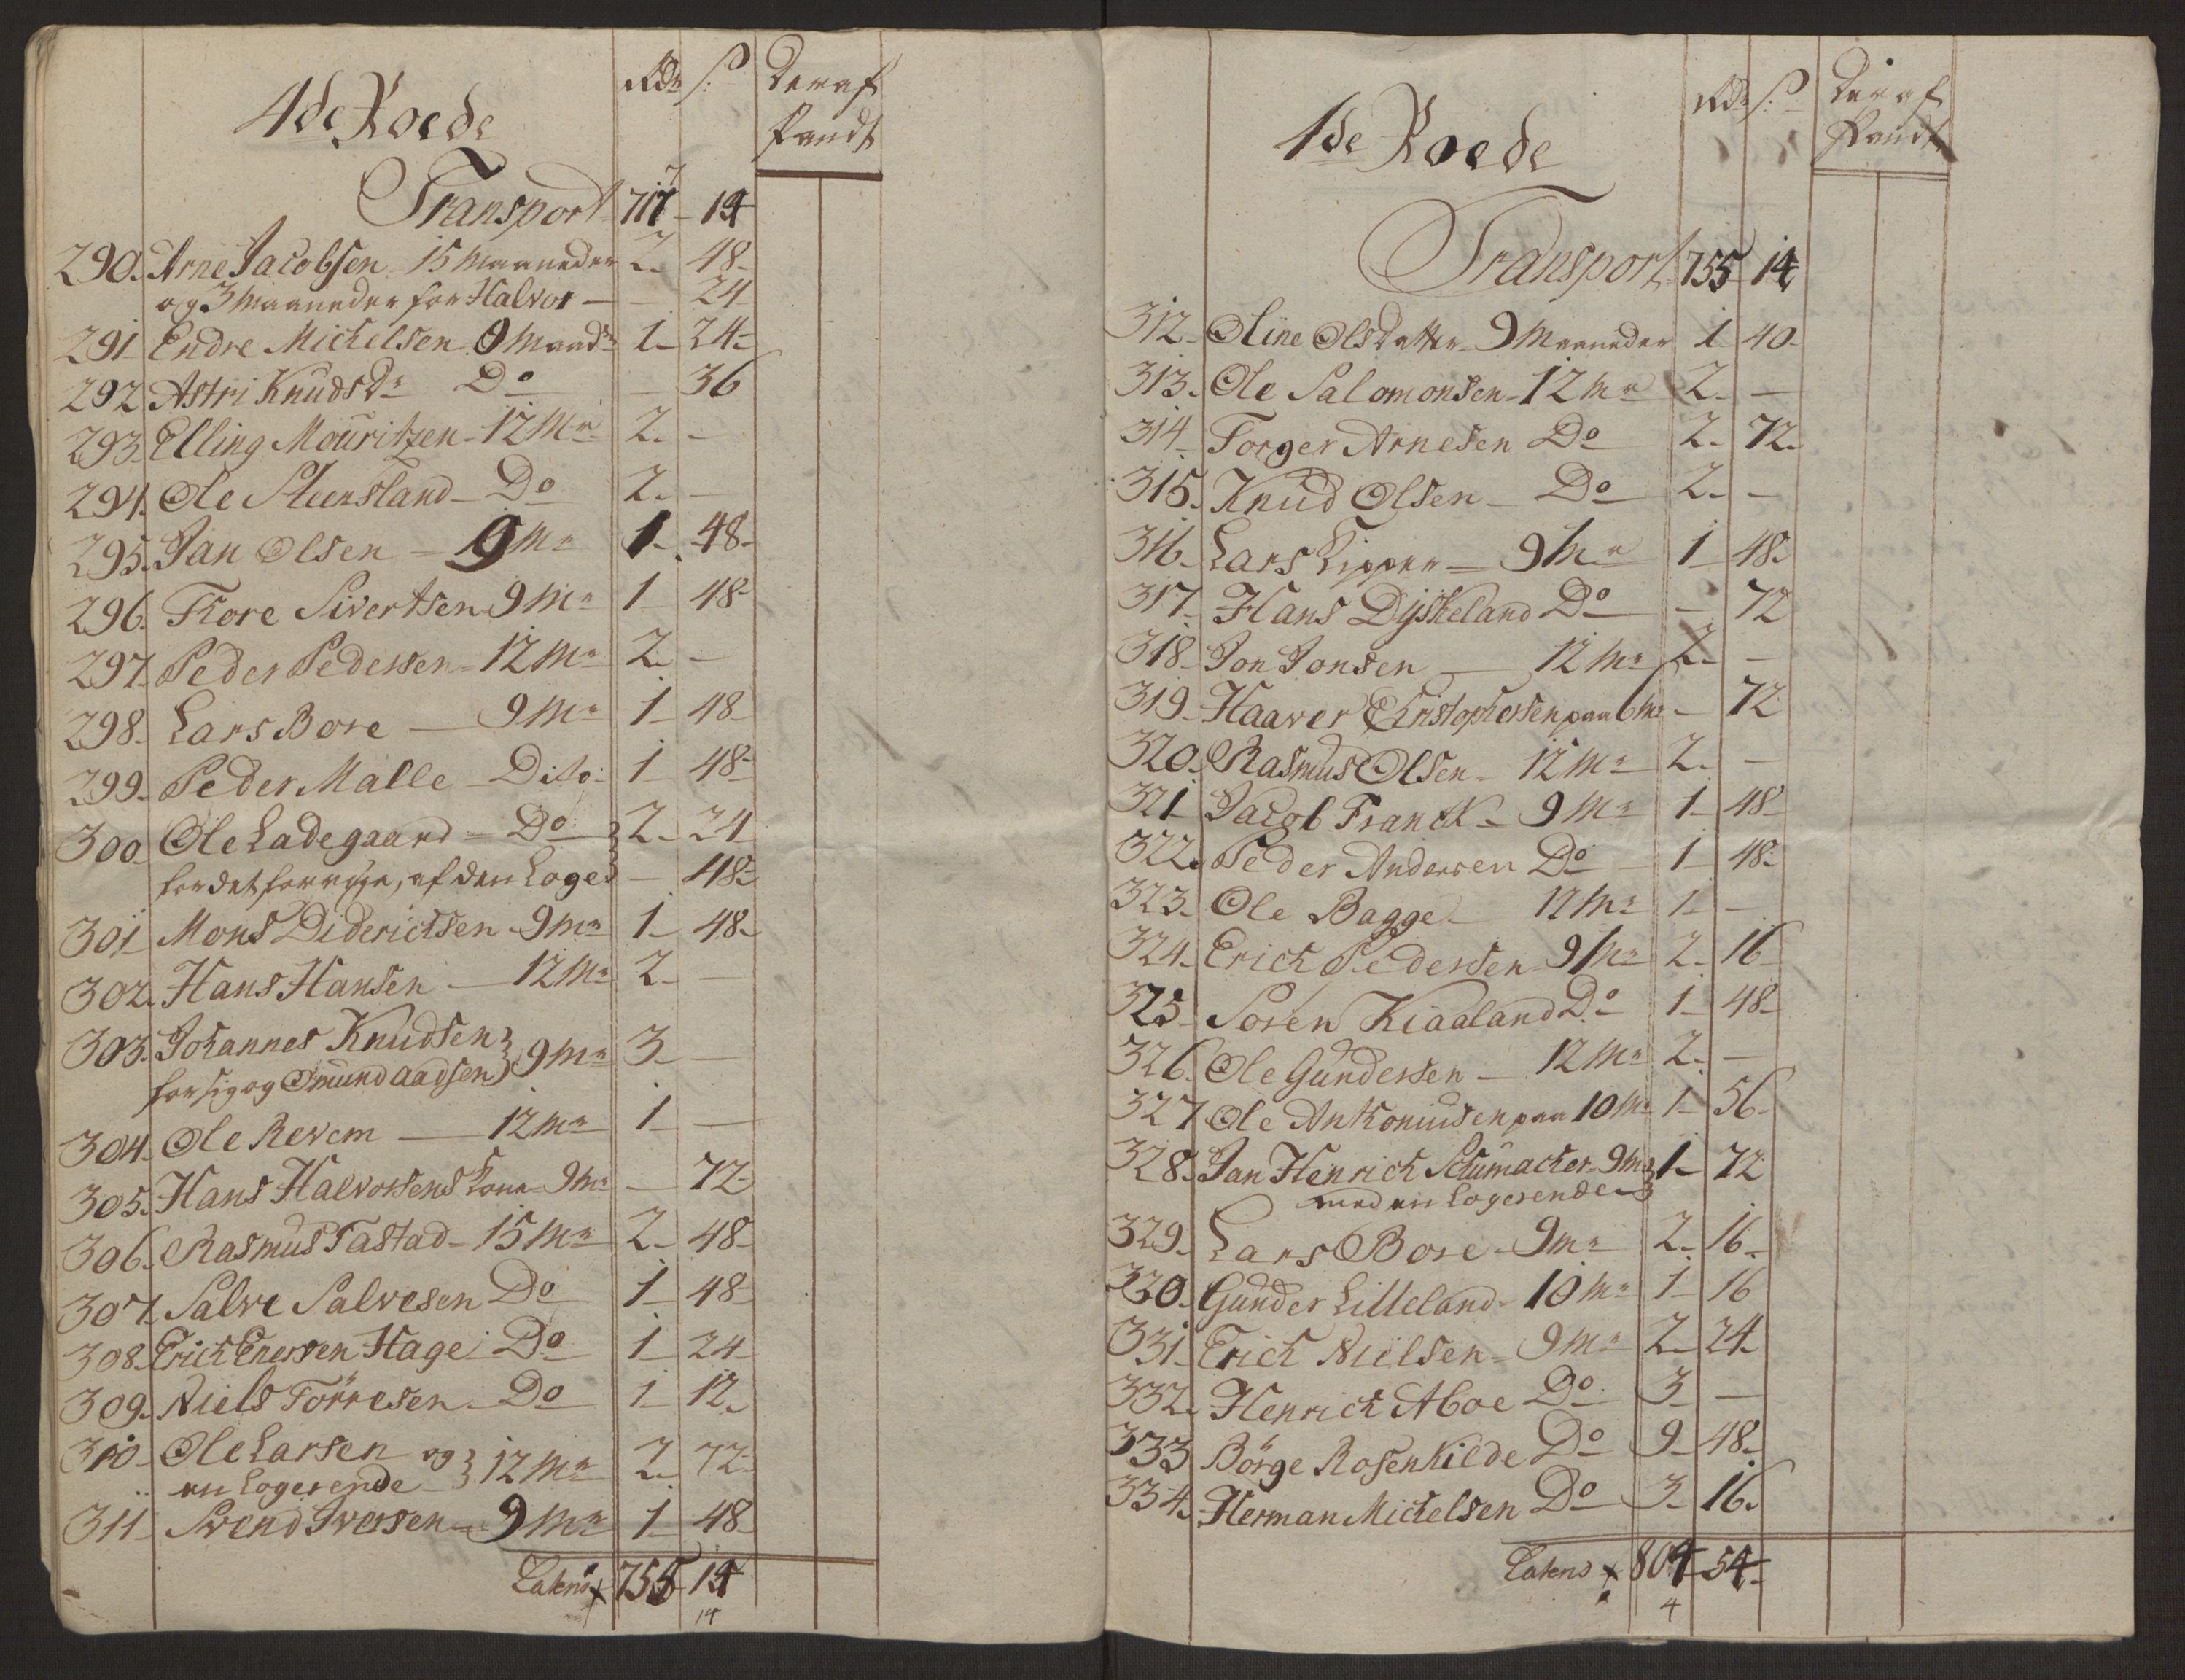 4de Roede
Rdr S: Deraf Pandt
Transport 717 - 14
290. Arne Jacobsen 15 Maaneder 2. 48-
og 3 Maaneder for Halvor - - 24
291 Endre Michelsen 9 Maadr 1- 24-
292 Astri Knudsdr Do - 36
293. Elling Mouritzen - 12 Mr 2. -
294. Ole Steensland - Do 2. -
295. Jan Olsen - 9 Mr 1. 48-
296. Thore Sivertsen 9 Mr 1 48-
297. Peder Pedersen - 12 Mr 2. -
298. Lars Bore - 9 Mr 1 48-
299. Peder Malle - Dito 1 48-
300 Ole Ladegaard - Do 2. 24
for det forrige, af den Loge - 48-
301 Mons Diderichsen 9 Mr 1 48-
302. Hans Hansen - 12 Mr 2. -
303. Johannes Knudsen
for sig og Omund Aadsen } 9 Mr 3 -
304. Ole Revem - 12 Mr 1 -
305. Hans Halvorsens Kone 9 Mr - 72-
306. Rasmus Tastad - 15 Mr 2. 48-
307. Salve Salvesen Do 1 48-
308. Erich Enersen Hage Do 1 24
309. Niels Törresen Do 1 12.
310- Ole Larsen og
en Logerende } 12 Mr 2. 72-
311- Svend Iversen - 9 Mr 1 48-
Latens 755 14
14
1de Roede
Rdr S: Deraf Pandt
Transport 755 14
312. Oline Olsdatter 9 Maaneder 1 40-
313. Ole Salomonsen - 12 Mr 2. -
314 Torger Arnesen Do 2. 72.
315. Knud Olsen - Do 2. -
316. Lars Kipper - 9 Mr 1 48.
317. Hans Dyskeland Do - 72
318. Jon Jonsen - 12 Mr 2. -
319. Haaver Christophersen paa 6 Mr - 72
320. Rasmus Olsen - 12 Mr 2. -
321 Jacob Franck - 9 Mr 1 48-
322. Peder Andersen Do 1 48-
323. Ole Bagge - 12 Mr 1 -
324. Erich Pedersen 9 Mr 2. 16
325 Soren Kiaaland Do 1 48-
326. Ole Gundersen - 12 Mr 2. -
327 Ole Anthoniusen paa 10 Mr 1 56-
328. Jan Henrich Schumacher 9 Mr 1- 72
med en Logerende
329. Lars Bore - 9 Mr 2. 16-
320. Gunder Lilleland - 10 Mr 1 16
331. Erich Nielsen - 9 Mr 2 24.
332. Henrich Aboe Do 3 -
333 Börge Rosenkilde Do 9- 48.
334. Herman Michelsen Do 3. 16.
Latens 804 54-
4